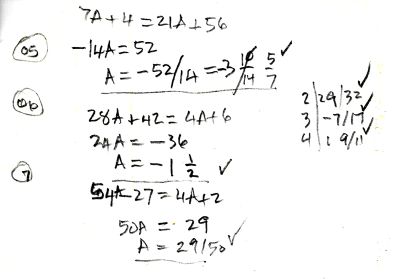 7A + 4 = 21A + 56
05
-14A = 52
A = -52/14 = -3 10/14 5/7 ✓
06
28A + 42 = 4A + 6
24A = -36
A = -1 1/2 ✓
7
54A - 27 = 4A + 2
50A = 29
A = 29/50 ✓
2 | 29/32 ✓
3 | -7/17 ✓
4 | 1 9/11 ✓